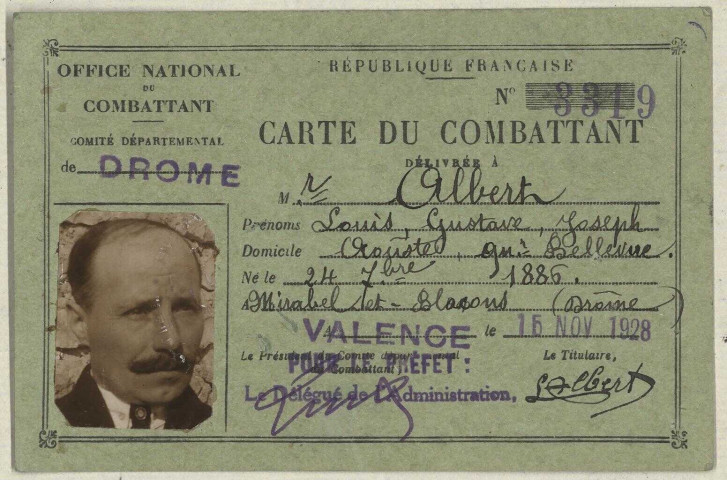 OFFICE NATIONAL
DU
COMBATTANT
COMITÉ DÉPARTEMENTAL
de DROME
RÉPUBLIQUE FRANÇAISE
N° 3319
CARTE DU COMBATTANT
DÉLIVRÉE À
M r Albert
Prénoms Louis, Gustave, Joseph
Domicile Aouste, qu. Bellevue.
Né le 24 7bre 1886.
à Mirabel et-Blacons (Drôme)
A VALENCE le 15 NOV 1928
Le Président du Comité départemental
du Combattant,
POUR LE PREFET :
Le Délégué de l'Administration,
Le Titulaire,
Albert